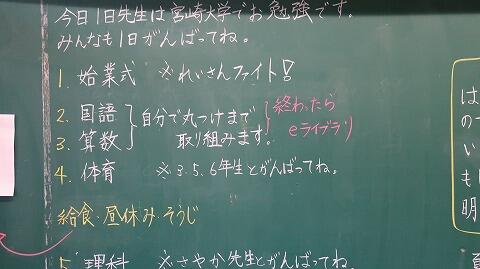 今日1日先生は宮崎大学でお勉強です。
みんなも1日がんばってね。
1. 始業式 ※れいさんファイト!
2. 国語
3. 算数
自分で丸つけまで
取り組みます。
終わったら
eライブラリ
4. 体育 ※3.5.6年生とがんばってね。
給食・昼休み・そうじ
5. 理科 ※さやか先生とがんばってね。
は
の
い
も
明